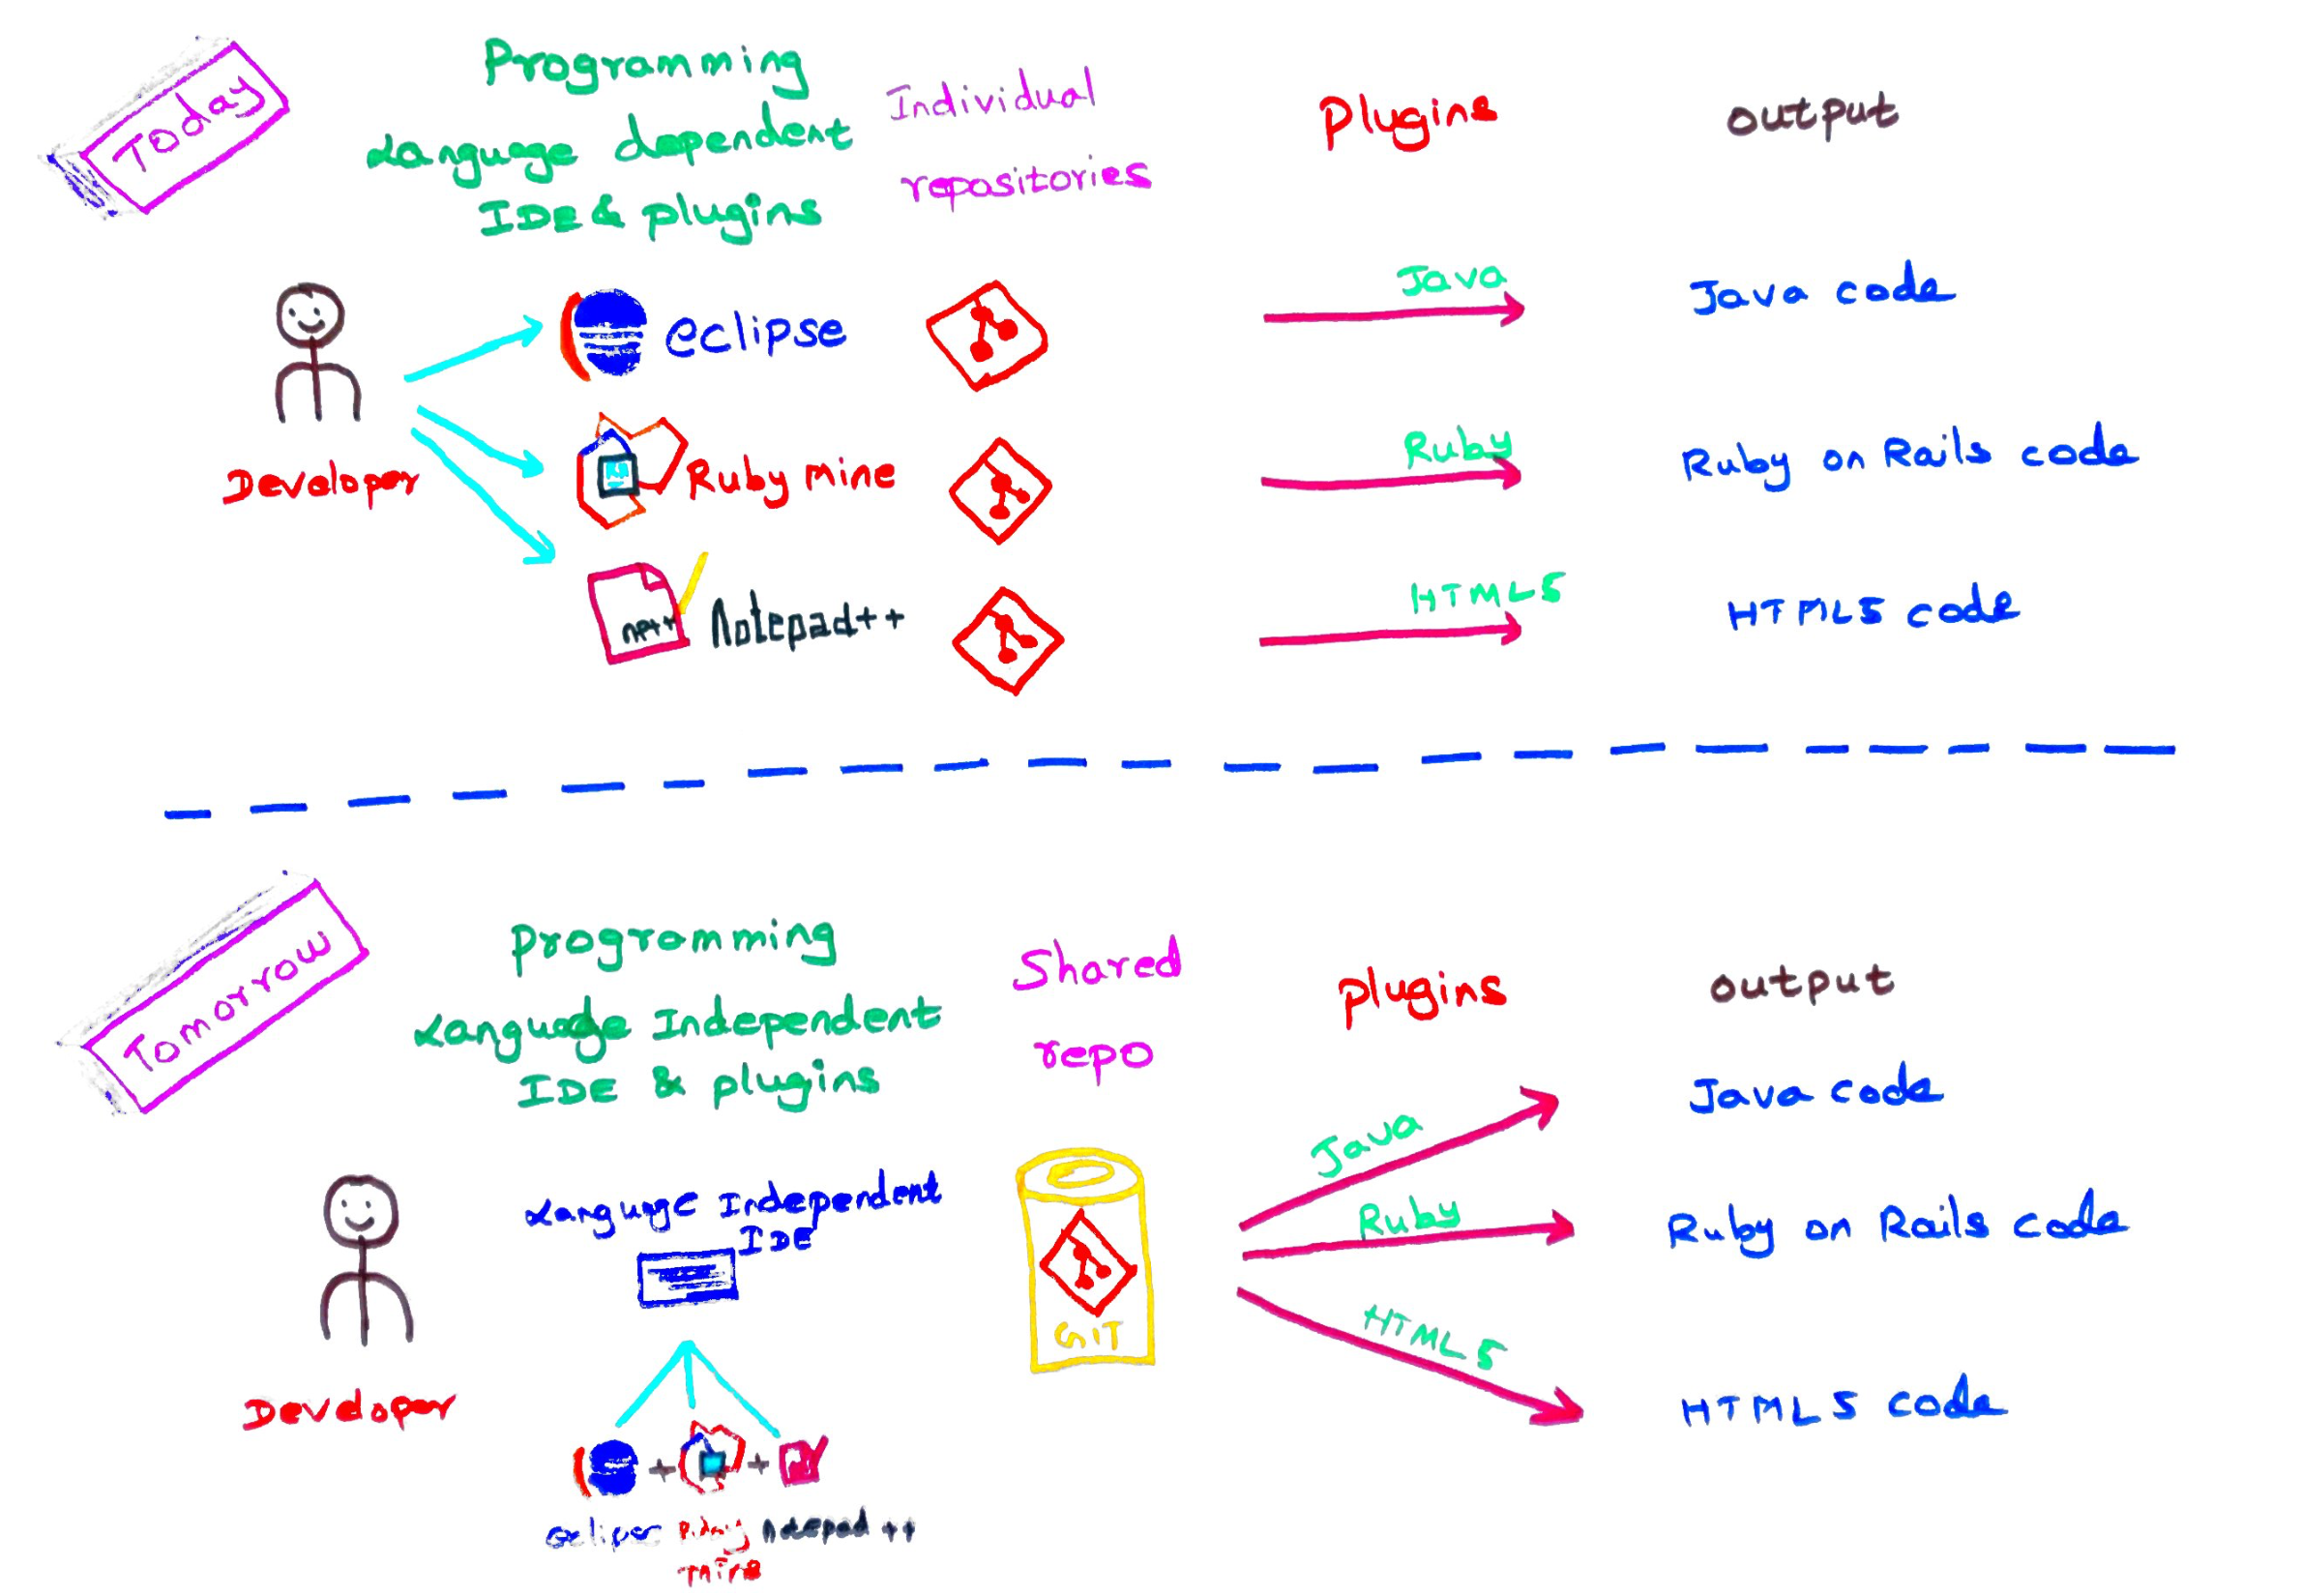 Today
Programming
Language dependent
IDE & plugins
Individual
repositories
Plugins
output
Developer
eclipse
Java
Java code
Ruby mine
Ruby
Ruby on Rails code
np++
Notepad++
HTML5
HTML5 code
Tomorrow
programming
Language Independent
IDE & plugins
Shared
repo
plugins
output
Developer
Language Independent
IDE
GIT
Java
Java code
Ruby
Ruby on Rails code
HTML5
HTML5 code
notepad ++